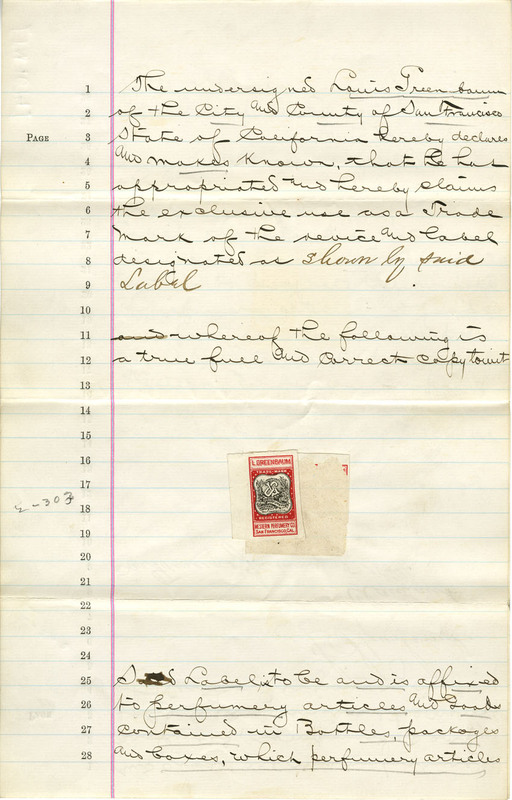 1 The undersigned Louis Greenbaum
2 of the City and County of San Francisco
PAGE 3 State of California hereby declares
4 and makes known, that he has
5 appropriated and hereby claims
6 the exclusive use as a Trade
7 Mark of the device and label
8 designated as shown by said
9 Label
10
11 and whereof the following is
12 a true full and correct copy towit
13
14
15
16
L. GREENBAUM
TRADE MARK
17
2-303
18
REGISTERED
WESTERN PERFUMERY CO.
SAN FRANCISCO, CAL.
19
20
21
22
23
24
25 Said Label is to be and is affixed
26 to perfumery articles and Goods
27 contained in Bottles, packages
28 and boxes, which perfumery articles